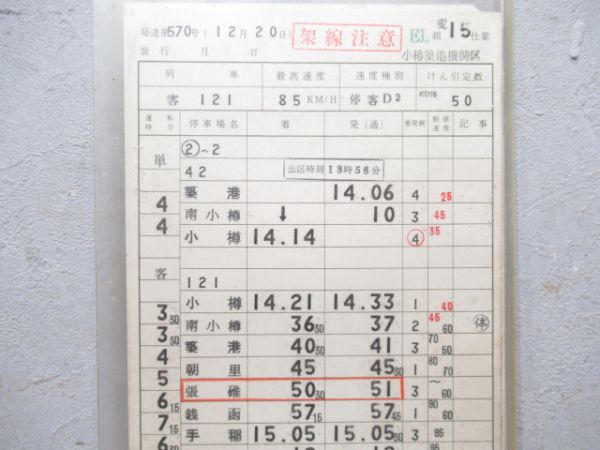 局達第570号(12月20日) 架線注意 EL 変組 15 仕業
施行 月 日 小樽築港機関区
列車 最高速度 速度種別 けん引定数
客 121 85 KM/H 停客D2 ED76 50
運転時分 停車場名 着 発(通) 着発線 制限速度 記事
単 ②~2
42 出区時刻13時56分
築港 14.06 4 25
4 南小樽 ↓ 10 3 45
4 小樽 14.14 ④ 35
客 121
小樽 14.21 14.33 1 40
3 30 南小樽 36 30 37 2 45 60 停
3 30 築港 40 30 41 3 70 50
4 朝里 45 45 30 1 80 70
5 張碓 50 30 51 3 〜 60
6 15 銭函 57 15 57 45 1 90 60
7 15 手稲 15.05 15.05 30 3 95
6 30